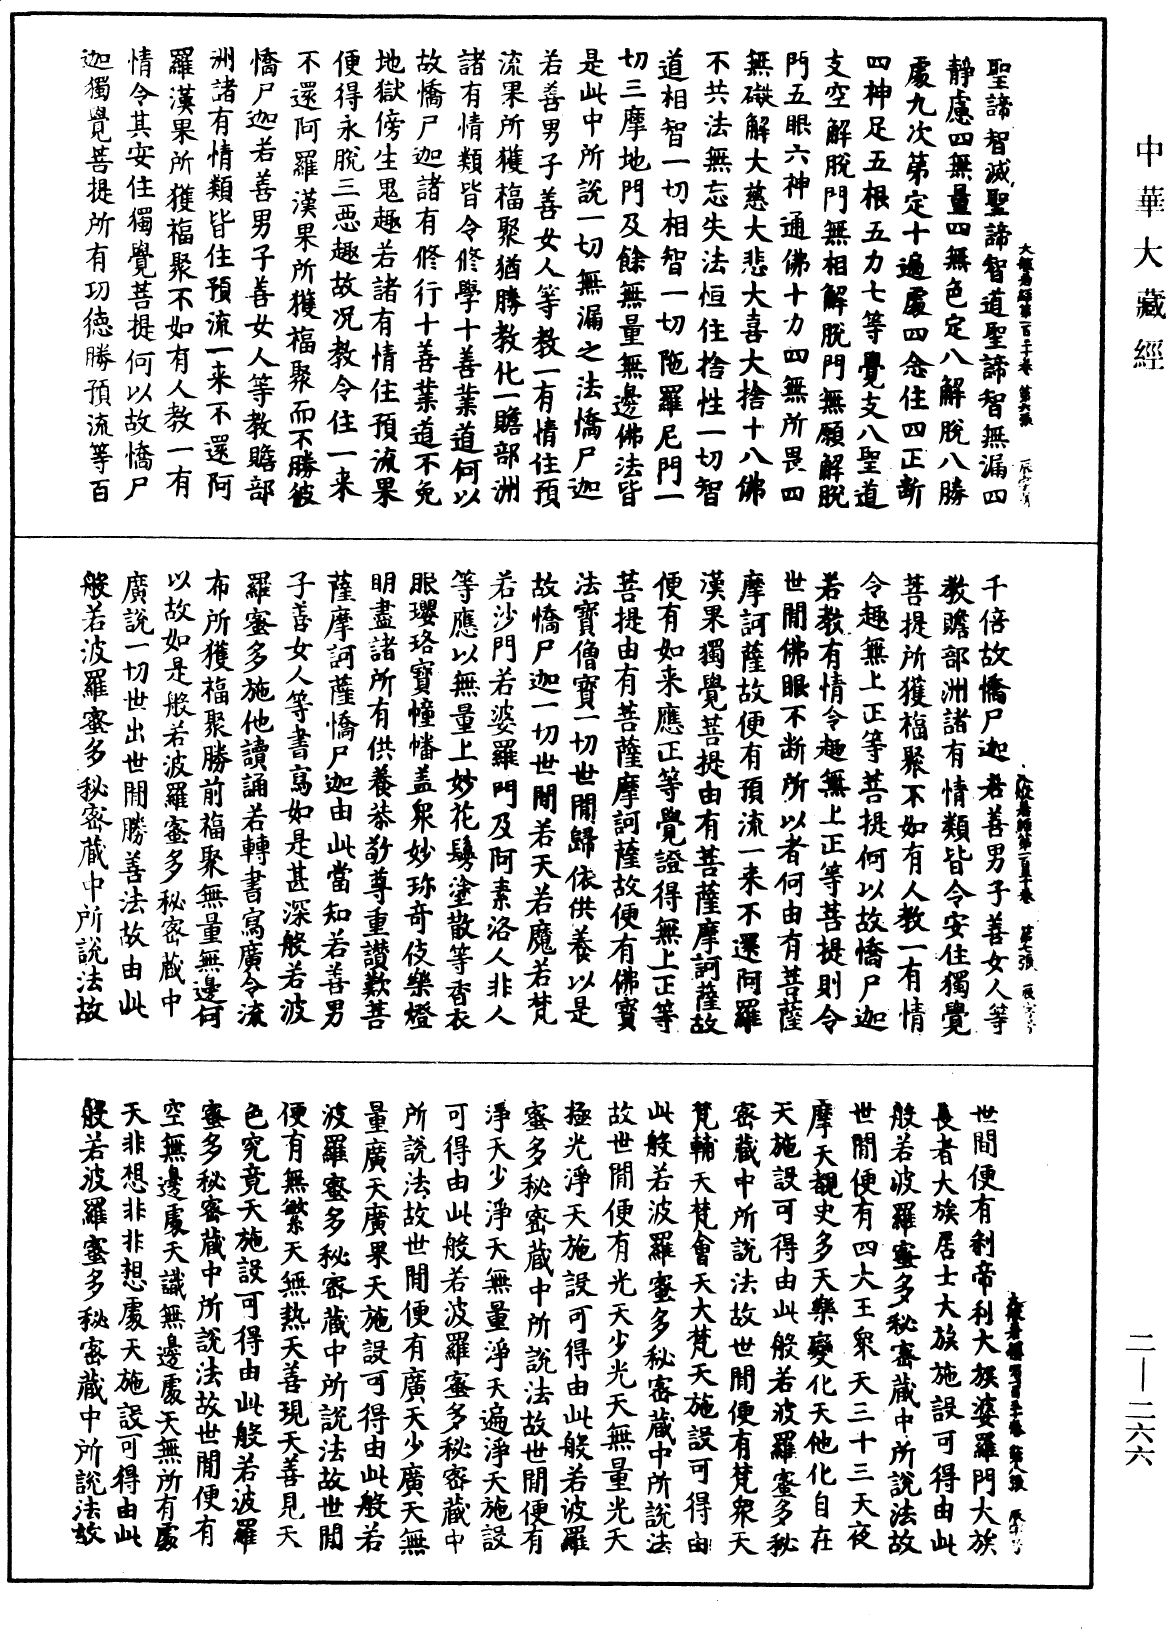 中華大藏經
聖諦智滅聖諦智道聖諦智無漏四
靜慮四無量四無色定八解脫八勝
處九次第定十遍處四念住四正斷
四神足五根五力七等覺支八聖道
支空解脫門無相解脫門無願解脫
門五眼六神通佛十力四無所畏四
無礙解大慈大悲大喜大捨十八佛
不共法無忘失法恒住捨性一切智
道相智一切相智一切陁羅尼門一
切三摩地門及餘無量無邊佛法皆
是此中所說一切無漏之法憍尸迦
若善男子善女人等教一有情住預
流果所獲福聚猶勝教化一贍部洲
諸有情類皆令修學十善業道何以
故憍尸迦諸有修行十善業道不免
地獄傍生鬼趣若諸有情住預流果
便得永脫三惡趣故況教令住一来
不還阿羅漢果所獲福聚而不勝彼
憍尸迦若善男子善女人等教贍部
洲諸有情類皆住預流一来不還阿
羅漢果所獲福聚不如有人教一有
情令其安住獨覺菩提何以故憍尸
迦獨覺菩提所有功德勝預流等百
千倍故憍尸迦若善男子善女人等
教贍部洲諸有情類皆令安住獨覺
菩提所獲福聚不如有人教一有情
令趣無上正等菩提何以故憍尸迦
若教有情令趣無上正等菩提則令
世間佛眼不斷所以者何由有菩薩
摩訶薩故便有預流一来不還阿羅
漢果獨覺菩提由有菩薩摩訶薩故
便有如来應正等覺證得無上正等
菩提由有菩薩摩訶薩故便有佛寶
法寶僧寶一切世間歸依供養以是
故憍尸迦一切世間若天若魔若梵
若沙門若婆羅門及阿素洛人非人
等應以無量上妙花鬘塗散等香衣
服瓔珞寶幢幡蓋衆妙珎奇伎樂燈
明盡諸所有供養恭敬尊重讚歎菩
薩摩訶薩憍尸迦由此當知若善男
子善女人等書寫如是甚深般若波
羅蜜多施他讀誦若轉書寫廣令流
布所獲福聚勝前福聚無量無邊何
以故如是般若波羅蜜多秘密藏中
廣說一切世出世間勝善法故由此
般若波羅蜜多秘密藏中所說法故
世間便有刹帝利大族婆羅門大族
長者大族居士大族施設可得由此
般若波羅蜜多秘密藏中所說法故
世間便有四大王衆天三十三天夜
摩天覩史多天樂變化天他化自在
天施設可得由此般若波羅蜜多秘
密藏中所說法故世間便有梵衆天
梵輔天梵會天大梵天施設可得由
此般若波羅蜜多秘密藏中所說法
故世間便有光天少光天無量光天
極光淨天施設可得由此般若波羅
蜜多秘密藏中所說法故世間便有
淨天少淨天無量淨天遍淨天施設
可得由此般若波羅蜜多秘密藏中
所說法故世間便有廣天少廣天無
量廣天廣果天施設可得由此般若
波羅蜜多秘密藏中所說法故世間
便有無繁天無熱天善現天善見天
色究竟天施設可得由此般若波羅
蜜多秘密藏中所說法故世間便有
空無邊處天識無邊處天無所有處
天非想非非想處天施設可得由此
般若波羅蜜多秘密藏中所說法故
二—二六六